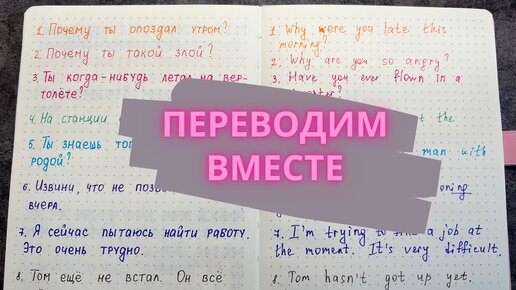 1. Почему ты опоздал утром?
2. Почему ты такой злой?
3. Ты когда-нибудь летал на вер-
толёте?
4. На станции
5. Ты знаешь
родой?
6. Извини, что не
вчера.
7. Я сейчас пытаюсь найти работу.
Это очень трудно.
8. Том ещё не встал. Он всё
1. Why were you late this
morning?
2. Why are you so angry?
3. Have you ever flown in a
the
man with
7. I'm trying to find a job at
the moment. It's very difficult.
8. Tom hasn't got up yet.
ПЕРЕВОДИМ
ВМЕСТЕ